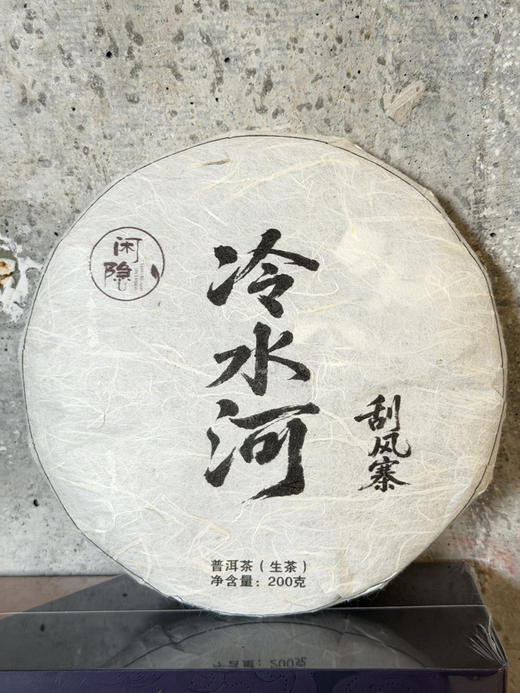 闲隐
冷水河
刮风寨
普洱茶（生茶）
净含量：200克